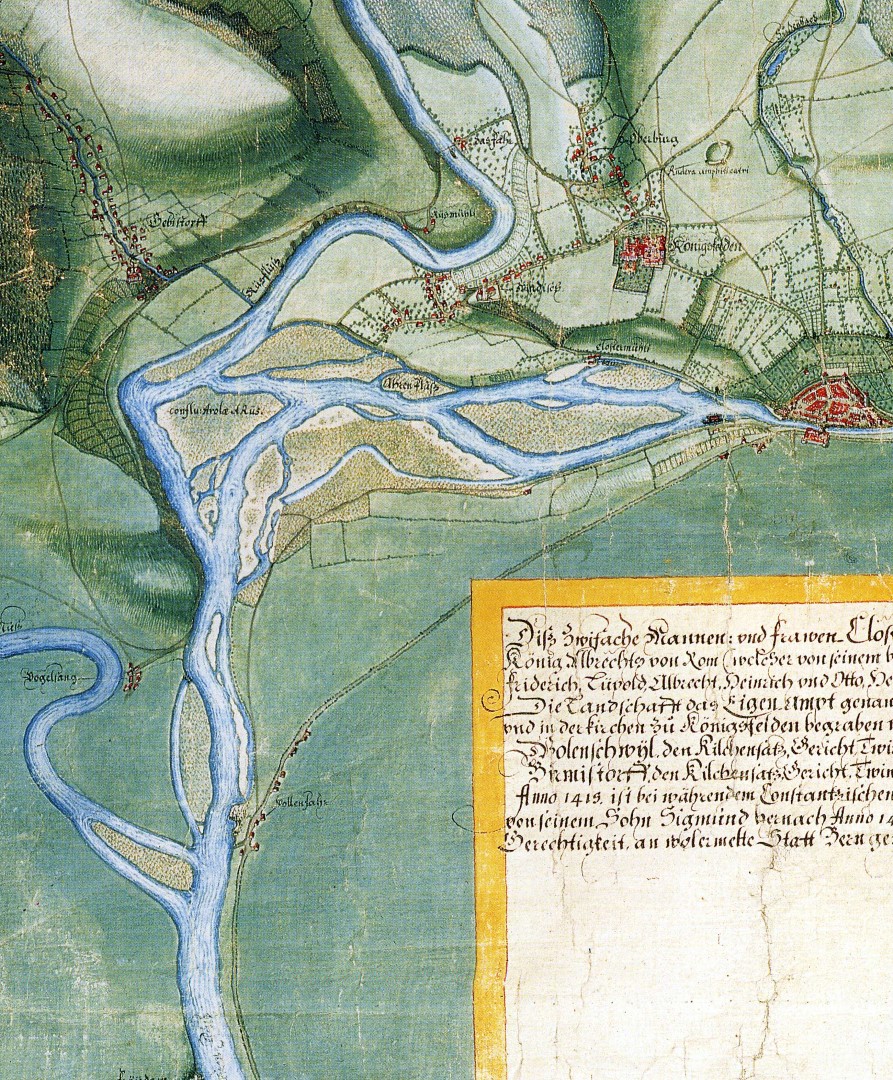 Oberburg
Rudera Amphiteatri
Gebistorff
Küsmühli
Königsfelden
Windisch
Clostermühli
Confluſ: Arolæ & Rüs.
Vogelsang
Diß Zwifache Mannen: vnd frawen Clös
König Albrechts von Rom (welcher von seinem b
friderich, Lüpold, Albrecht, Heinrich vnd Otto, He
Die Landschafft das Eigen Ampt genan
vnd in der kirchen zů Königsfelden begraben
Wolenschwÿl, den Kilchensatz, Gericht, Twi
Birmistorff, den Kilchensatz, Gericht, Twin
Anno 1415. ist bei währendem Constantzischen
von seinem Sohn Sigmund hernach Anno 14
Gerechtigkeit, an wolermelte Statt Bern ge